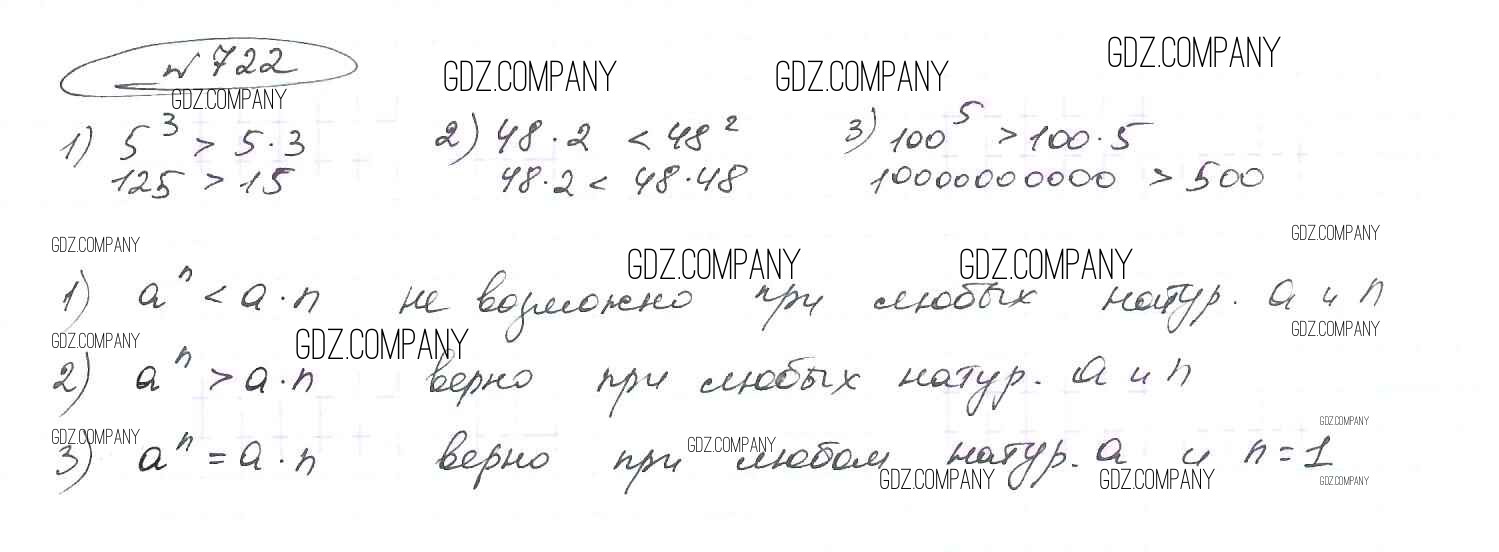 № 722
GDZ.COMPANY GDZ.COMPANY GDZ.COMPANY GDZ.COMPANY
1) 5³ > 5·3 2) 48·2 < 48² 3) 100⁵ > 100·5
125 > 15 48·2 < 48·48 10000000000 > 500
GDZ.COMPANY GDZ.COMPANY GDZ.COMPANY GDZ.COMPANY
1) aⁿ < a·n не возможно при любых натур. a и n
GDZ.COMPANY GDZ.COMPANY GDZ.COMPANY
2) aⁿ > a·n верно при любых натур. a и n
GDZ.COMPANY GDZ.COMPANY GDZ.COMPANY
3) aⁿ = a·n верно при любом натур. a и n = 1
GDZ.COMPANY GDZ.COMPANY GDZ.COMPANY